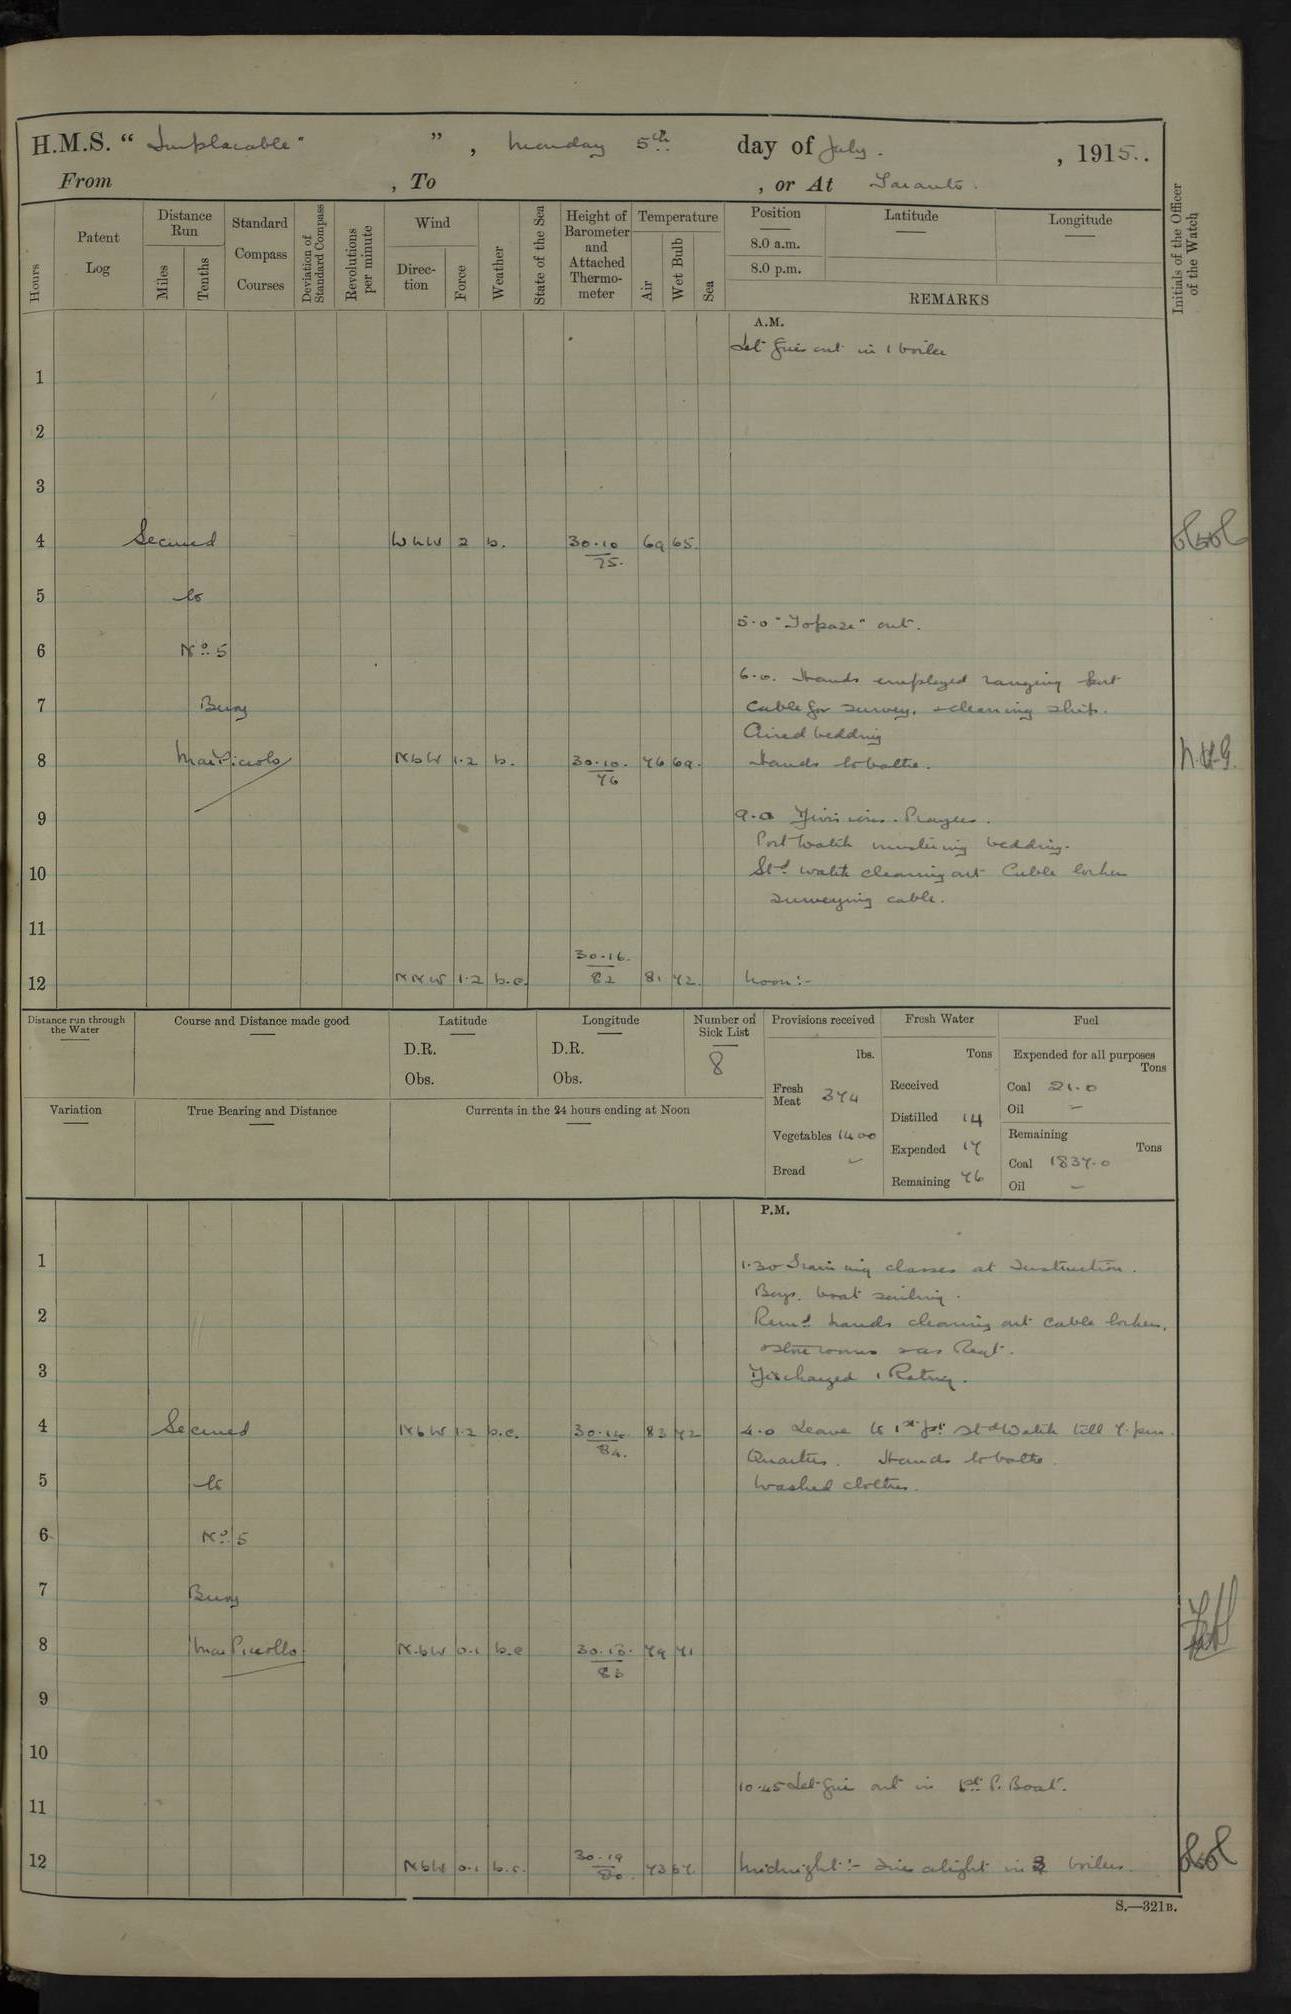 H.M.S. “ Implacable ” , Monday 5th day of July. , 1915.
From , To , or At Taranto.
Hours
Patent Log
Distance Run
Miles
Tenths
Standard Compass Courses
Deviation of Standard Compass
Revolutions per minute
Wind
Direction
Force
Weather
State of the Sea
Height of Barometer and Attached Thermometer
Temperature
Air
Wet Bulb
Sea
Position
Latitude
Longitude
8.0 a.m.
8.0 p.m.
REMARKS
Initials of the Officer of the Watch
A.M.
Let fires out in 1 boiler
1
2
3
4 Secured WNW 2 b. 30.10 75. 69 65.
5 to
5.0 "Topaze" out.
6 No 5
6.0. Hands employed ranging port
7 Buoy cable for survey, & cleaning ship.
Aired bedding
8 Mar Piccolo NbW 1.2 b. 30.10. 76 76 69. Hands to bathe. N.H.G.
9 9.0 Divisions. Prayers.
Port Watch mustering bedding.
10 Std watch cleaning out Cable locker
surveying cable.
11
12 NNW 1.2 b.c. 30.16. 82 81 72. Noon:-
Distance run through the Water
Course and Distance made good
Latitude
D.R.
Obs.
Longitude
D.R.
Obs.
Number on Sick List
8
Provisions received
lbs.
Fresh Meat 374
Vegetables 1400
Bread –
Fresh Water
Tons
Received
Distilled 14
Expended 17
Remaining 76
Fuel
Expended for all purposes
Tons
Coal 21.0
Oil –
Remaining
Tons
Coal 1837.0
Oil –
Variation
True Bearing and Distance
Currents in the 24 hours ending at Noon
P.M.
1 1.30 Training classes at Instruction.
Boys. boat sailing.
2 Remd hands cleaning out cable locker,
& store rooms & as Reqt.
3 Discharged 1 Rating.
4 Secured NbW 1.2 b.c. 30.14. 84. 83 72 4.0 Leave to 1st pt Std Watch till 7. pm.
Quarters. Hands to bathe.
5 to Washed clothes.
6 No 5
7 Buoy
8 Mar Piccollo. N.bW 0.1 b.c 83 79 71
9
10
10.45 Let fire out in 1st P. Boat.
11
12 NbW 0.1 b.c. 30.19 80. 73 67. Midnight:- Fires alight in 3 boilers.
S.—321B.